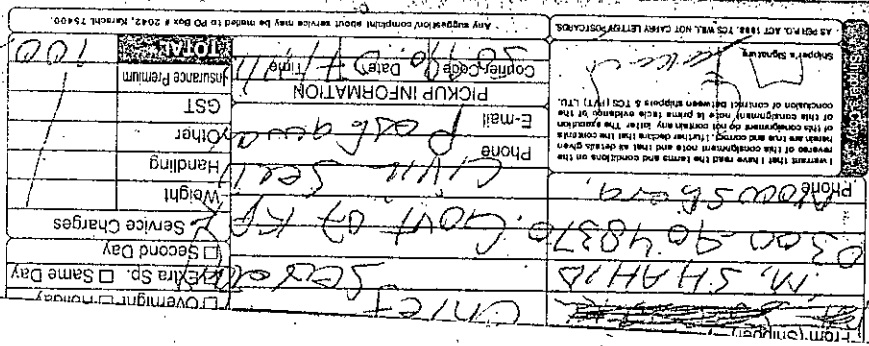 From (Shipper)
M. SHAHID
0300-9048370
Phone
Nowshera
I warrant that I have read the terms and conditions on the
reverse of this consignment note and that as details given
herein are true and correct. I further declare that the contents
of this consignment do not contain any latter. The execution
of this consignment note is prima facie evidence of the
conclusion of contract between shippers & TCS (PVT) LTD.
Shipper's Signature
AS PER P.O. ACT 1898, TCS WILL NOT CARRY LETTERS/POSTCARDS
Chief
Govt of KP
Civil
Phone
Peshawar
E-mail
PICKUP INFORMATION
Courier Code
Date
Time
Any suggestion/complaint about service may be mailed to PO Box # 2042, Karachi. 75400.
Overnight
Holiday
Extra Sp.
Same Day
Second Day
Service Charges
Weight
Handling
Other
GST
Insurance Premium
TOTAL
100